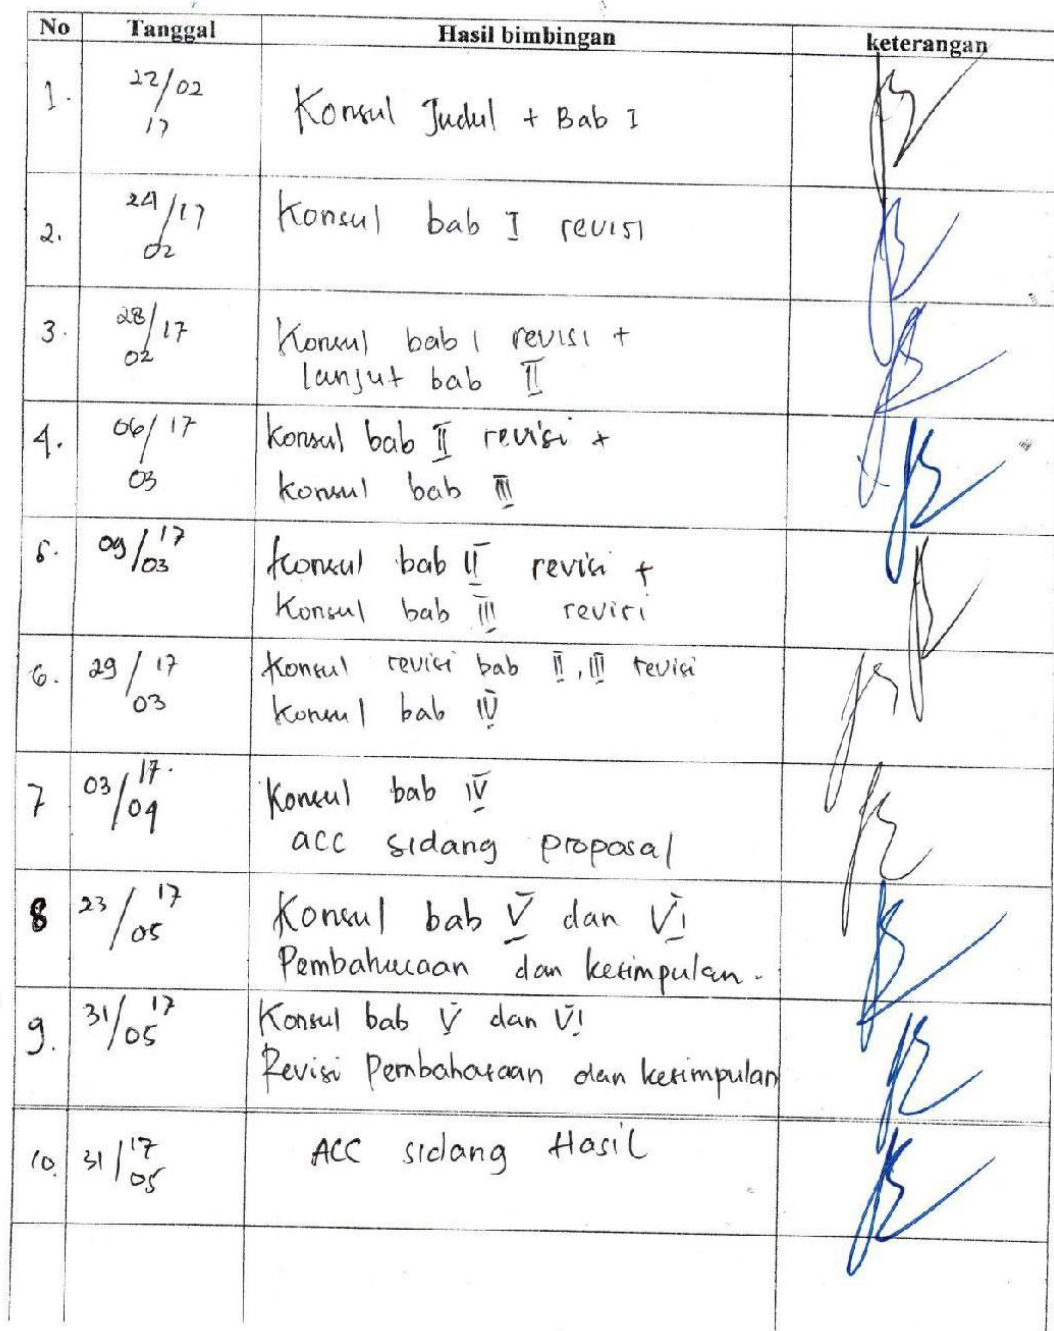 No Tanggal Hasil bimbingan keterangan
1. 22/02 17 Konsul Judul + Bab I
2. 24/17 02 Konsul bab I revisi
3. 28/17 02 Konsul bab I revisi +
lanjut bab II
4. 06/17 03 konsul bab II revisi +
konsul bab III
5. 09/17 03 konsul bab II revisi +
Konsul bab III revisi
6. 29/17 03 konsul revisi bab II, III revisi
konsul bab IV
7 03/17 04 Konsul bab IV
acc sidang proposal
8 23/17 05 Konsul bab V dan VI
Pembahasaan dan kesimpulan.
9. 31/17 05 Konsul bab V dan VI
Revisi Pembahasaan dan kesimpulan
10. 31/17 05 ACC sidang Hasil